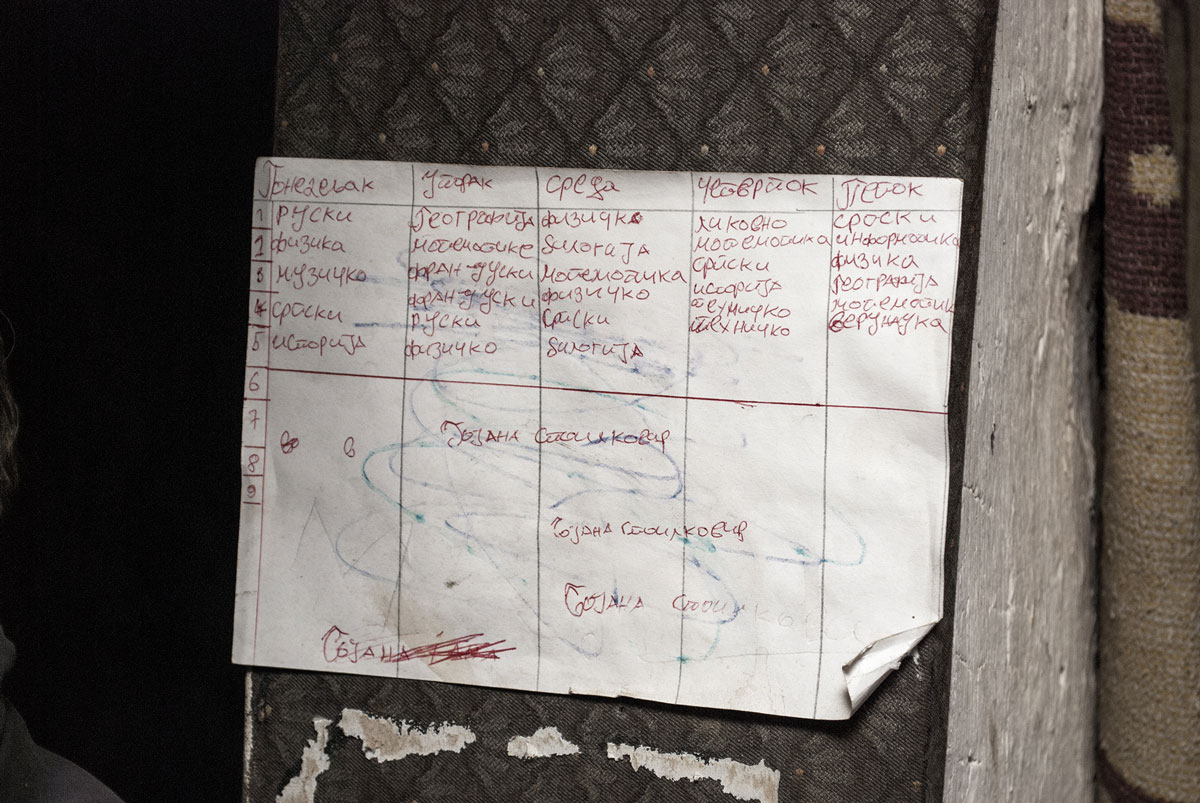 Понедељак уторак среда четврток петок
1 Руски географија физичко ликовно српски
1 физика мотематике биологија мотемотика информатика
3 музичко француски мотемотика српски физика
француски физичко историја географија
4 српски руски српски техничко мотематик
5 историја физичко биологија техничко верунаука
6
7
в в Бојана Стоилковић
8
9
Бојана Стоилковић
Бојана Стоилкови
Бојана